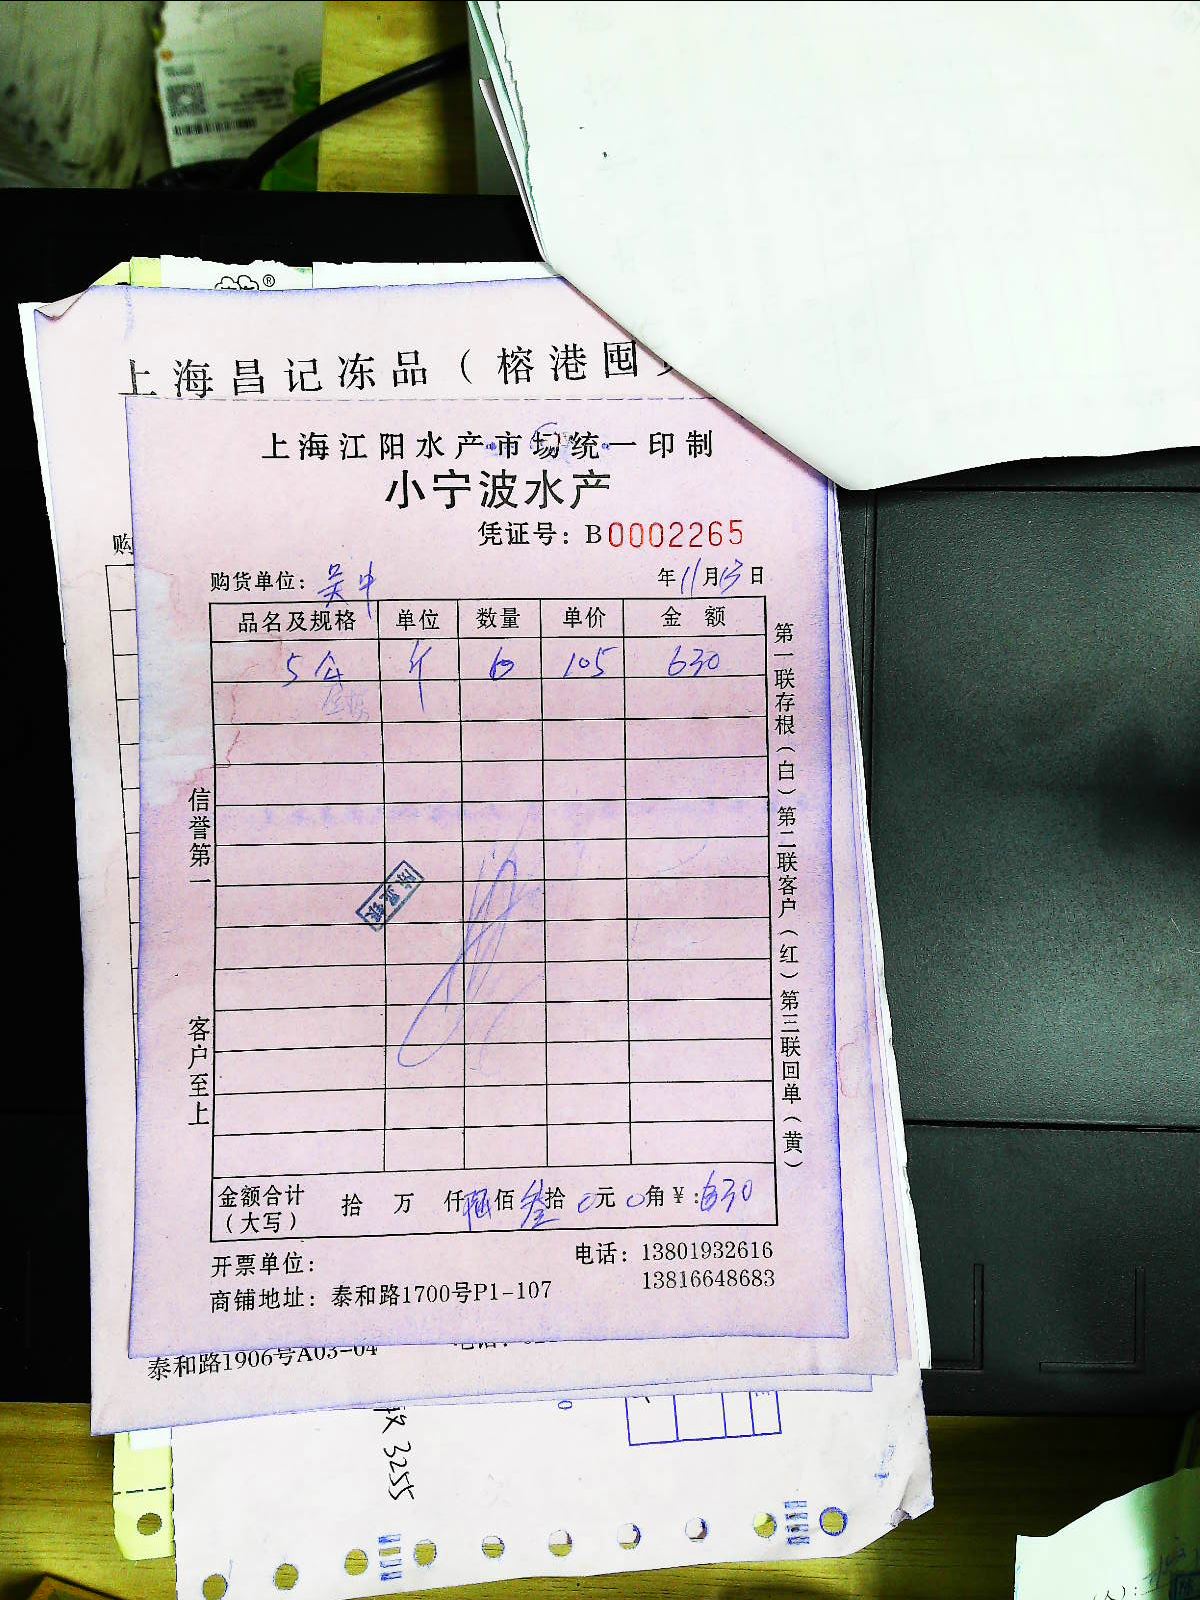 上海昌记冻品（榕港囤
上海江阳水产市场统一印制
小宁波水产
凭证号：B0002265
购
购货单位：吴中 年11月13日
品名及规格 单位 数量 单价 金额
5 斤 6 105 630
信誉第一
客户至上
第一联存根（白）第二联客户（红）第三联回单（黄）
金额合计（大写） 拾 万 仟陆佰叁拾0元0角￥:630
开票单位： 电话：13801932616
13816648683
商铺地址：泰和路1700号P1-107
泰和路1906号A03-04
3255